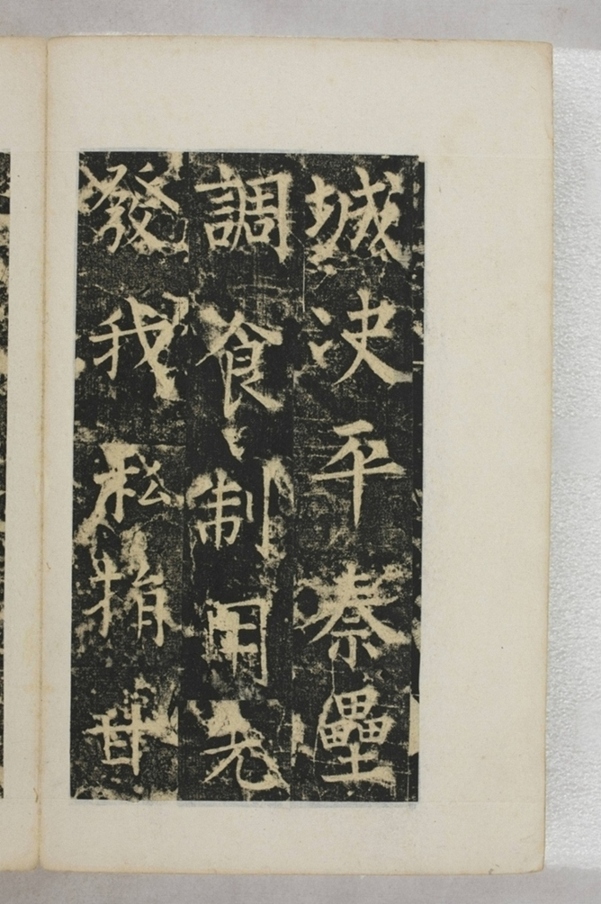 城决平秦壘
調食制用老
發我私捐甘